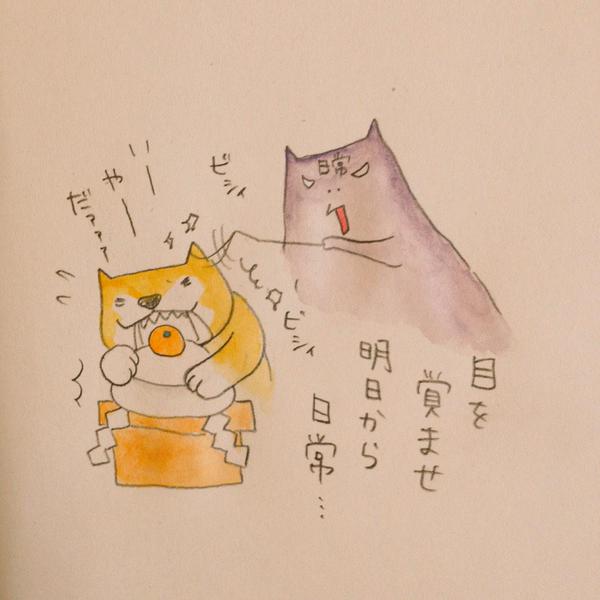 日常
ビシィ
いー
やー
だァァァ
ビシィ
目を
賞ませ
明日から
日常…